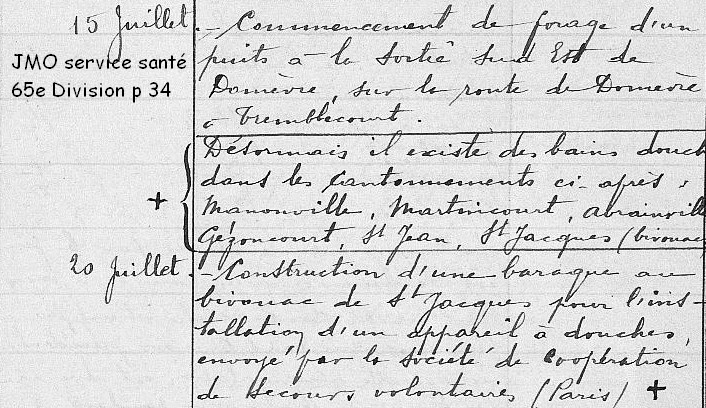 15 Juillet. - Commencement de forage d'un
JMO service santé
65e Division p 34
puits à la Sortie Sud Est de
Domèvre, sur la route de Domèvre
à Tremblecourt.
Désormais il existe des bains douch
dans les Cantonnements ci-après :
+ Manonville, Martincourt, Abrainvill
Gézoncourt, St Jean, St Jacques (bivouac
20 Juillet. - Construction d'une baraque au
bivouac de St Jacques pour l'ins-
tallation d'un appareil à douches,
envoyé par la Société de Coopération
de Secours volontaires (Paris) +